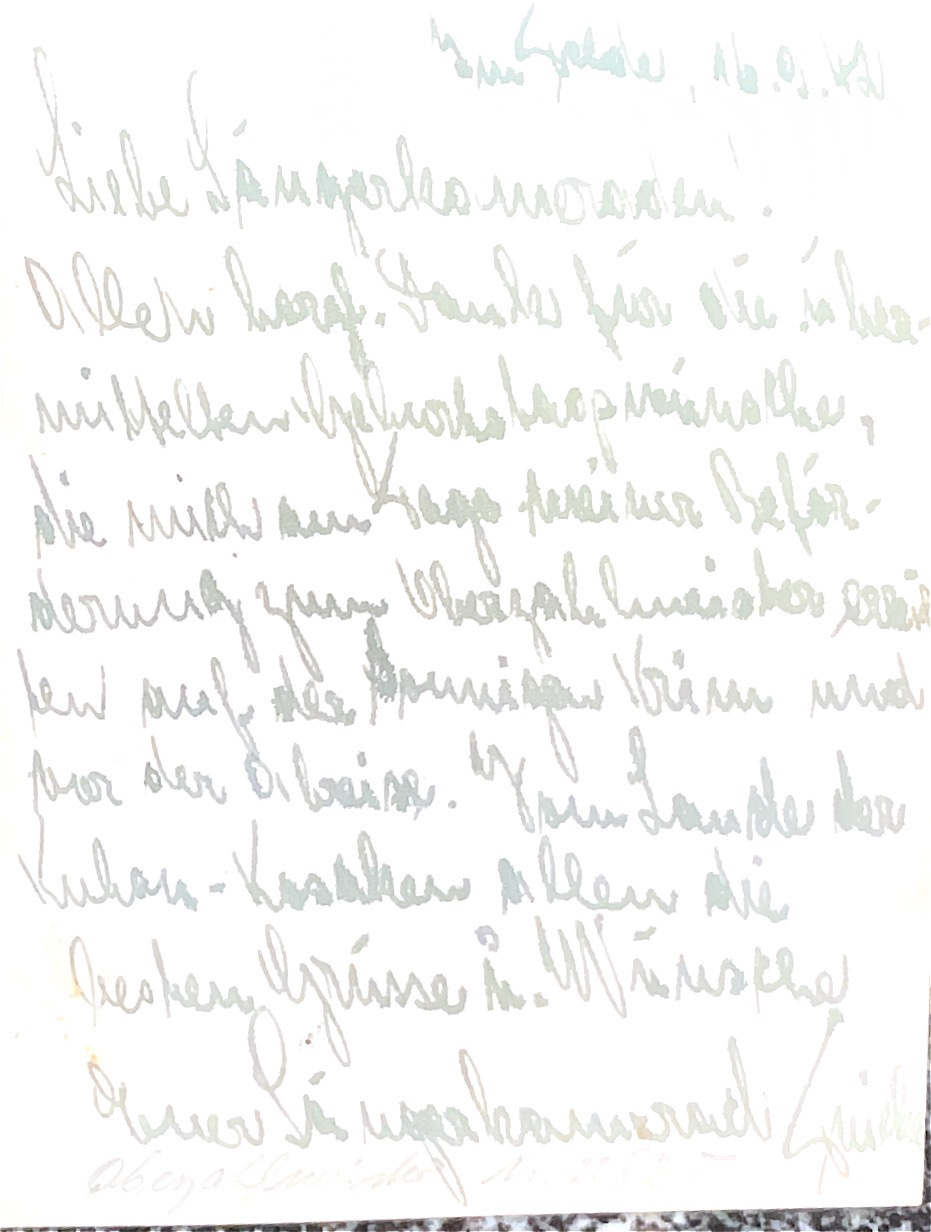 Im Felde,
Liebe Sängerkameraden!
Allen herzl. Dank für die über-
mittelten Geburtstagswünsche,
die mich am Tage meiner Beför-
derung zum Oberzahlmeister erreich-
ten auf der sonnigen Krim und
vor der Abreise. Vom Lande der
Kuban-Kosaken allen die
besten Grüsse u. Wünsche
Euer Sängerkamerad
Oberzahlmeister